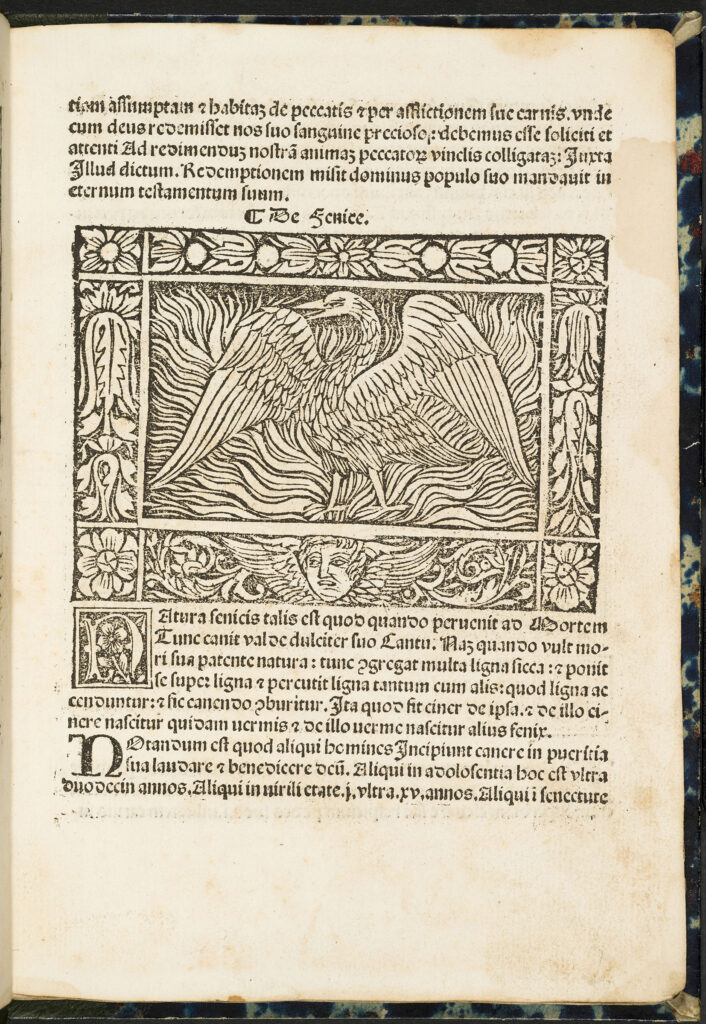 tiom assumptam ⁊ habitaꝫ de peccatis ⁊ per afflictionem sue carnis. vnde
cum deus redemisset nos suo sanguine precioso: debemus esse soliciti et
attenti Ad redimenduꝫ nostrã animaꝫ peccatoꝝ vinclis colligataꝫ: Juxta
Illud dictum. Redemptionem misit dominus populo suo mandauit in
eternum testamentum suum.
¶ De Fenice.
NAtura fenicis talis est quod quando peruenit ad Mortem
Tunc canit valde dulciter suo Cantu. Naꝫ quando vult mo-
ri sua patente natura: tunc ꝯgregat multa ligna sicca: ⁊ ponit
se super ligna ⁊ percutit ligna tantum cum alis: quod ligna ac
cenduntur: ⁊ sic canendo ꝯburitur. Ita quod fit ciner de ipsa. ⁊ de illo ci-
nere nascitur quidam uermis ⁊ de illo uerme nascitur alius fenix.
NOtandum est quod aliqui homines Incipiunt canere in pueritia
sua laudare ⁊ benedicere deũ. Aliqui in adolosentia hoc est vltra
duodecin annos. Aliqui in uirili etate .j. vltra .xv. annos. Aliqui ĩ senectute